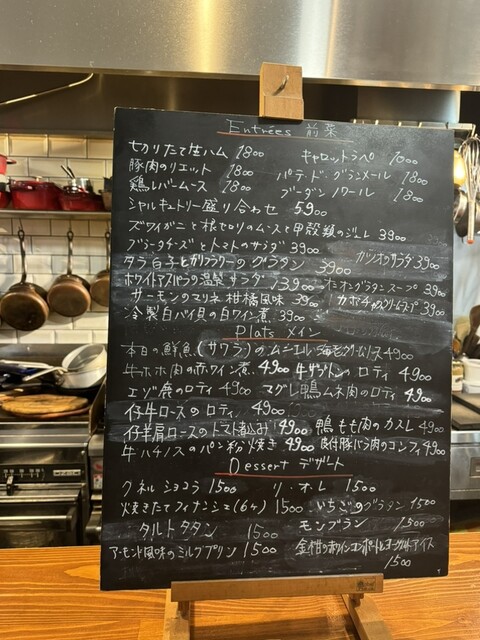 Entrées 前菜
切りたて生ハム 1800 キャロットラペ 1000
豚肉のリエット 1800 パテ・ド・グランメール 1800
鶏レバームース 1800 ブーダンノワール 1800
シャルキュトリー盛り合わせ 5900
ズワイガニと根セロリのムースと甲殻類のジュレ 3900
ブラータチーズとトマトのサラダ 3900 カツオのサラダ 3900
タラ白子とカリフラワーのグラタン 3900
ホワイトアスパラの温製サラダ 3900 オニオングラタンスープ 3900
サーモンのマリネ 柑橘風味 3900 カボチャのクリームスープ 3900
冷製白バイ貝の白ワイン煮 3900
Plats メイン
本日の鮮魚(サワラ)のムニエル 4900
牛ホホ肉の赤ワイン煮 4900 牛サガリのロティ 4900
エゾ鹿のロティ 4900 マグレ鴨ムネ肉のロティ 4900
仔牛ロースのロティ 4900
仔羊肩ロースのトマト煮込み 4900 鴨もも肉のカスレ 4900
牛ハチノスのパン粉焼き 4900 骨付豚バラ肉のコンフィ 4900
Dessert デザート
クネルショコラ 1500 リ・オ・レ 1500
焼きたてフィナンシェ(6ヶ) 1500 いちごのグラタン 1500
タルトタタン 1500 モンブラン 1500
アーモンド風味のミルクプリン 1500 金柑の赤ワインコンポートとヨーグルトアイス
1500